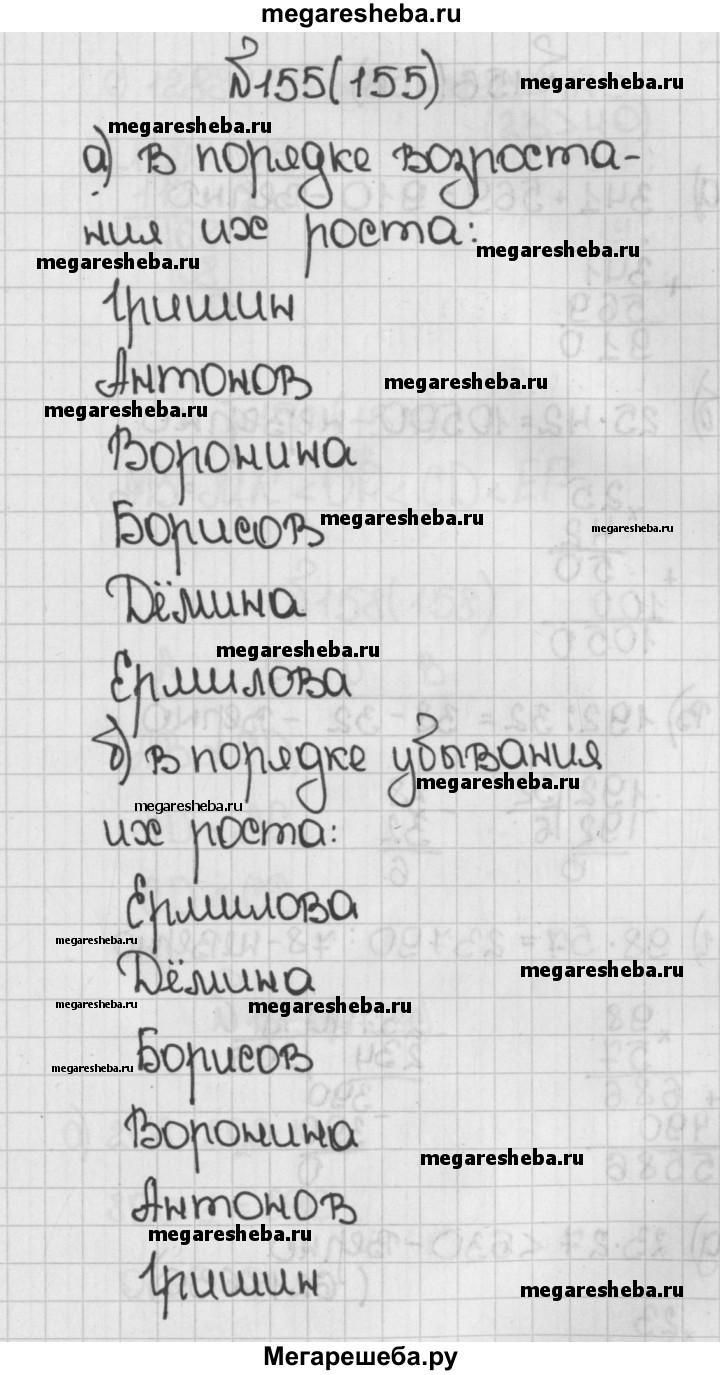 megaresheba.ru
№155(155)
megaresheba.ru
megaresheba.ru
а) в порядке возроста-
ния их роста:
megaresheba.ru
megaresheba.ru
Гришин
Антонов
megaresheba.ru
megaresheba.ru
Воронина
Борисов
megaresheba.ru
megaresheba.ru
Дёмина
megaresheba.ru
Ермилова
б) в порядке убывания
megaresheba.ru
megaresheba.ru
их роста:
Ермилова
megaresheba.ru
Дёмина
megaresheba.ru
megaresheba.ru
megaresheba.ru
Борисов
megaresheba.ru
Воронина
megaresheba.ru
Антонов
megaresheba.ru
Гришин
megaresheba.ru
Мегарешеба.ру